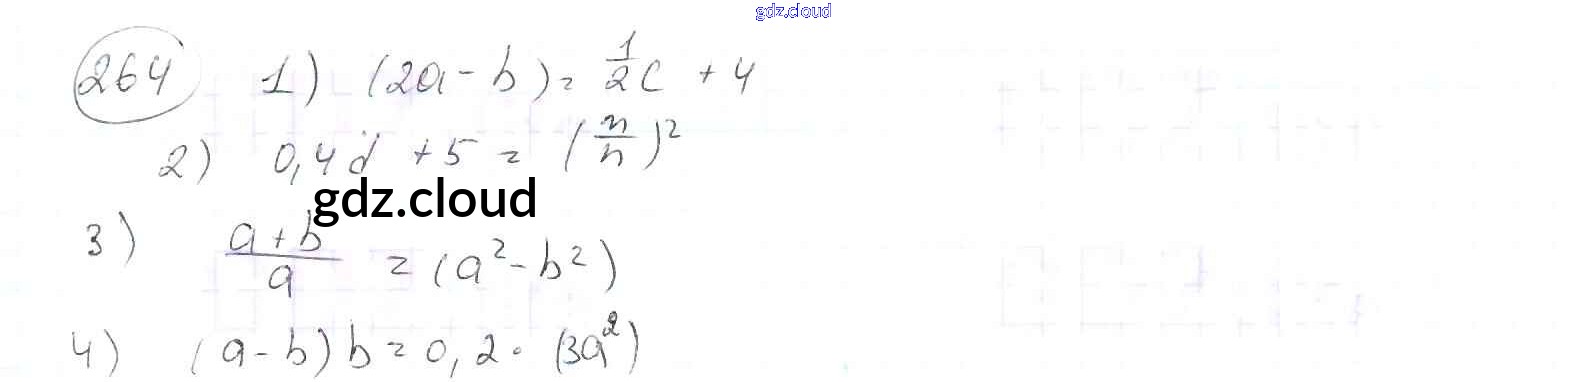 gdz.cloud
264 1) (2a - b) = 1/2 c + 4
2) 0,4d + 5 = (m/n)²
gdz.cloud
3) (a + b)/a = (a² - b²)
4) (a - b) b = 0,2 · (3a²)